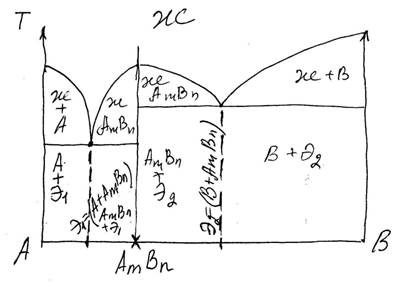 T
ЖС
Ж
+
A
Ж
AmBn
Ж
AmBn
Ж+B
A
+
Э1
Э1=(A+AmBn)
AmBn
+Э1
AmBn
+
Э2
Э2=(B+AmBn)
B+Э2
A
AmBn
B